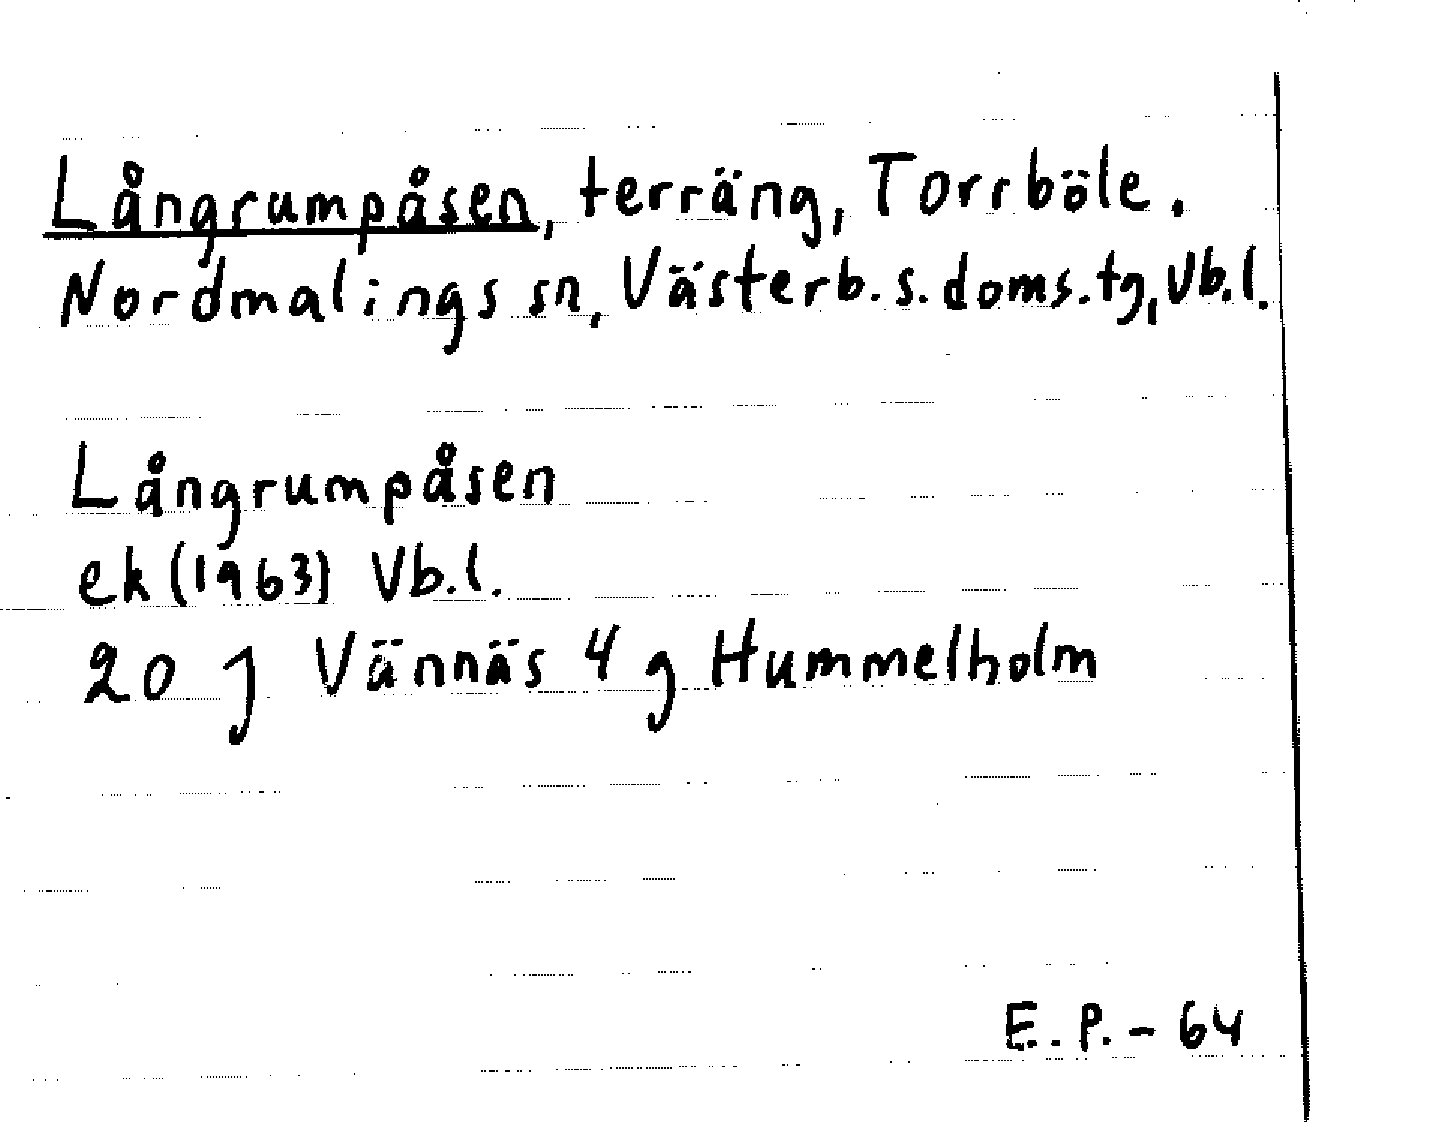 Långrumpåsen, terräng, Torrböle.
Nordmalings sn, Västerb. s. doms. tg, Vb. l.
Långrumpåsen
ek (1963) Vb. l.
20 J Vännäs 4 g Hummelholm
E. P. - 64